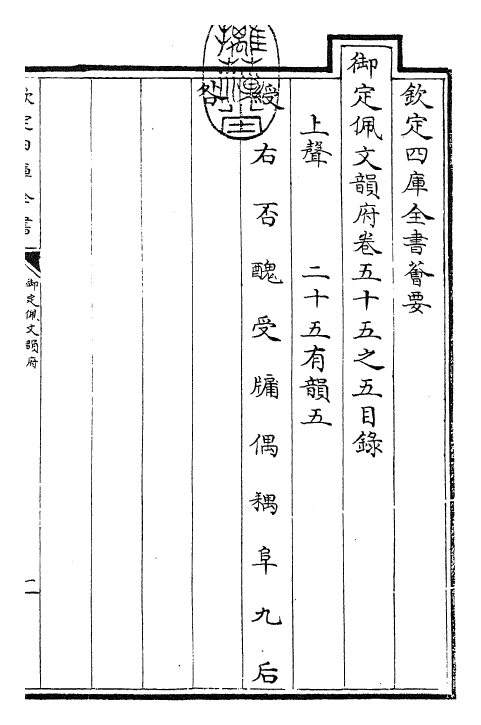 欽定四庫全書薈要
御定佩文韻府卷五十五之五目錄
上聲 二十五有韻五
綬右否醜受牖偶耦阜九后
咎
欽定四庫全書
御定佩文韻府